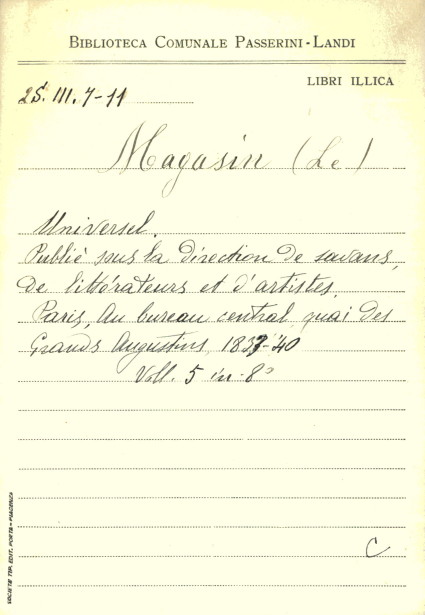 BIBLIOTECA COMUNALE PASSERINI - LANDI
LIBRI ILLICA
2S. III. 7-11
Magasin (Le)
Universel.
Publié sous la direction de savans,
de littérateurs et d'artistes.
Paris, Au bureau central, quai des
Grands Augustins, 1833-40
Voll. 5 in-8°
C
SOCIETÀ TIP. EDIT. PORTA - PIACENZA